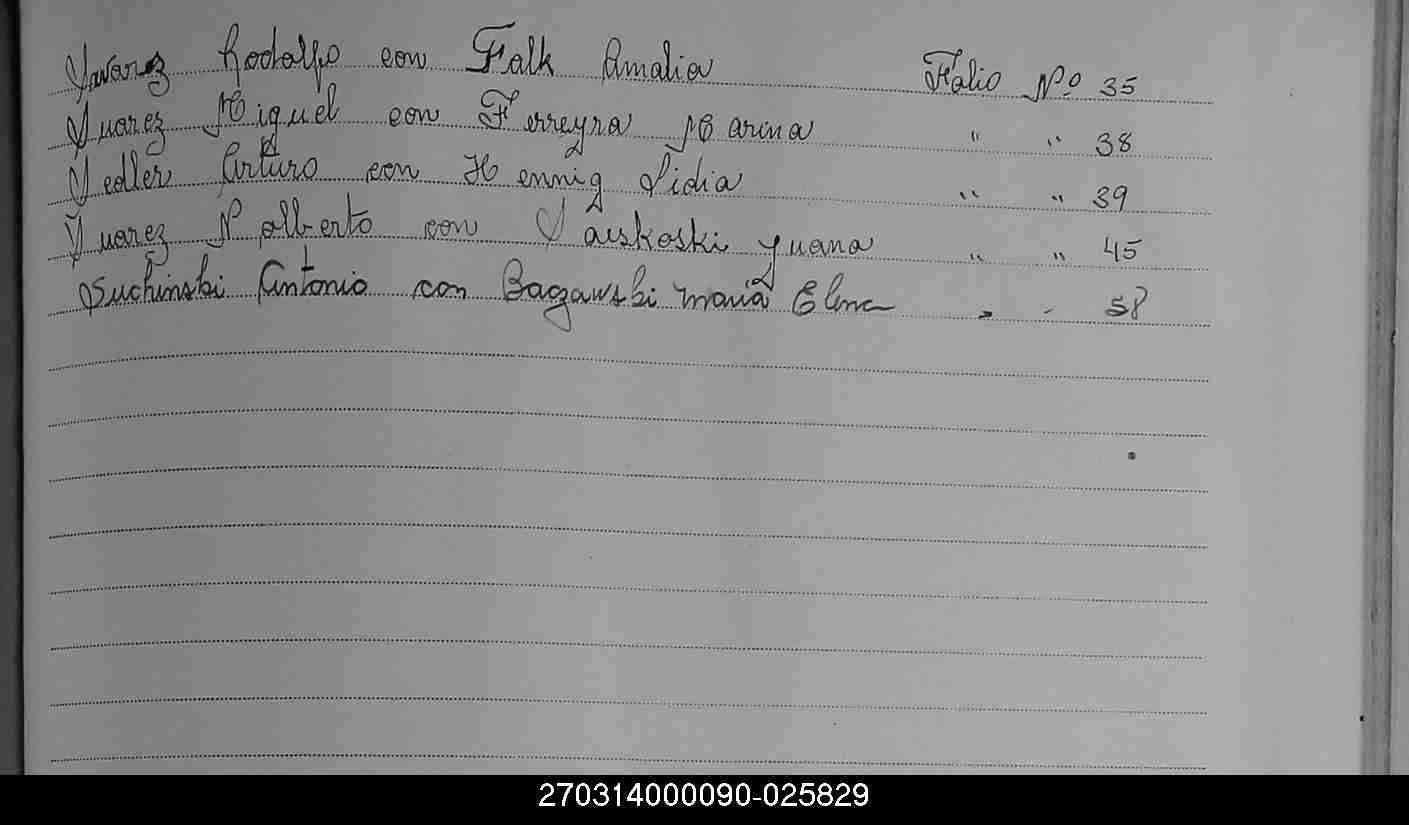 Suarez Rodolfo con Falk Amalia Folio Nº 35
Suarez Miguel con Ferreyra Marina " " 38
Sedller Arturo con Hennig Lidia " " 39
Suarez Nalberto con Sauskoski Yuana " " 45
Suchinski Antonio con Bagawski Maria Elena " " 58
270314000090-025829